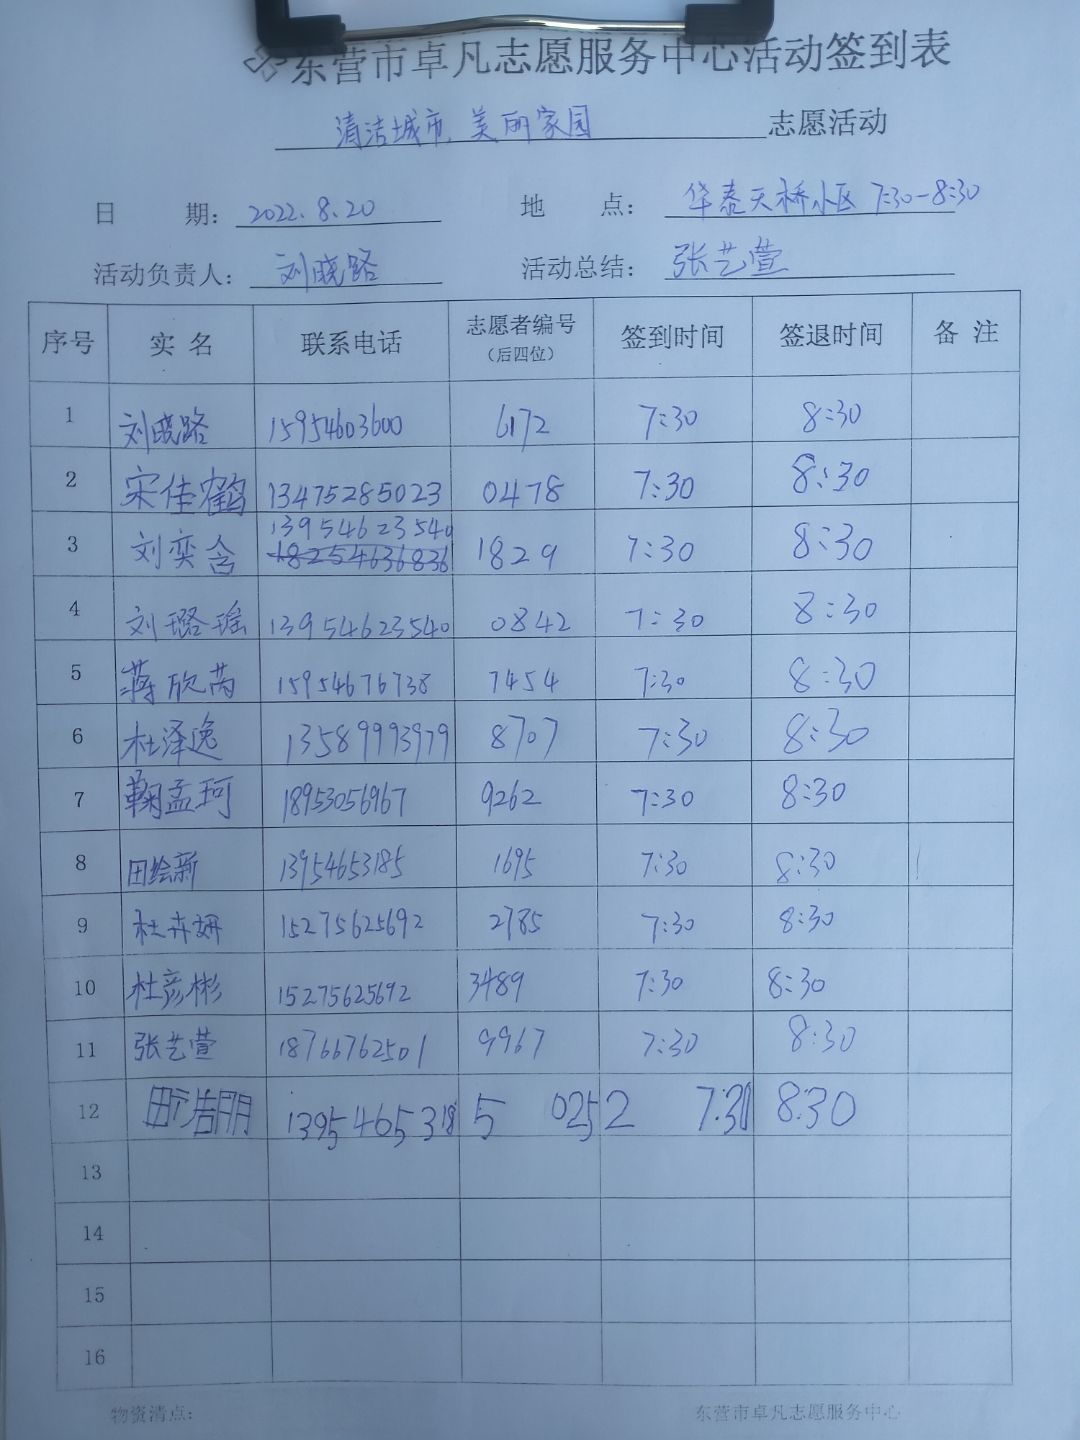 东营市卓凡志愿服务中心活动签到表
清洁城市,美丽家园 志愿活动
日 期: 2022.8.20 地 点: 华泰天桥小区 7:30-8:30
活动负责人: 刘晓路 活动总结: 张艺萱
序号 实名 联系电话 志愿者编号(后四位) 签到时间 签退时间 备注
1 刘晓路 15954603600 6172 7:30 8:30
2 宋佳鹤 13475285023 0478 7:30 8:30
3 刘奕含 13954623540 18254636836 1829 7:30 8:30
4 刘璐瑶 13954623540 0842 7:30 8:30
5 蒋欣芮 15954676738 7454 7:30 8:30
6 杜泽逸 13589993979 8707 7:30 8:30
7 鞠孟珂 18953056967 9262 7:30 8:30
8 田绘新 13954653185 1695 7:30 8:30
9 杜卉妍 15275625692 2785 7:30 8:30
10 杜彦彬 15275625692 3489 7:30 8:30
11 张艺萱 18766762501 9967 7:30 8:30
12 13954653185 0252 7:30 8:30
13
14
15
16
物资清点: 东营市卓凡志愿服务中心